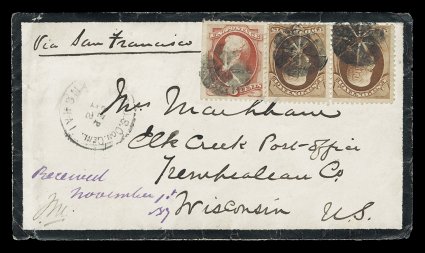 Via San Francisco
Mrs Markham
Elk Creek Post-office
Trempealeau Co.
Wisconsin U.S.
Received
November 1st